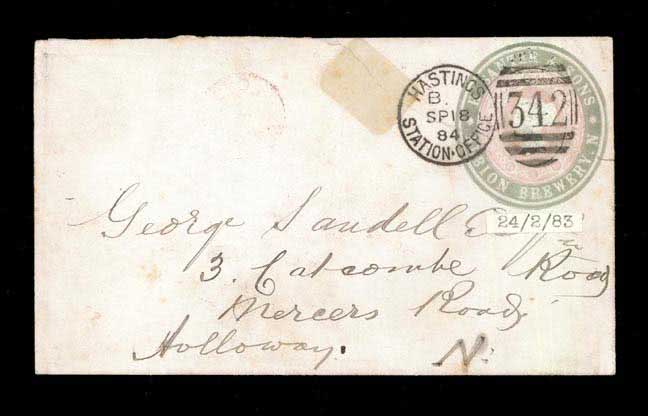 HASTINGS
B.
SP 18
84
STATION·OFFICE
342
& SONS
BREWERY. N
24/2/83
George Sandell
3. Catcombe Road
Mercers Road,
Holloway. N.